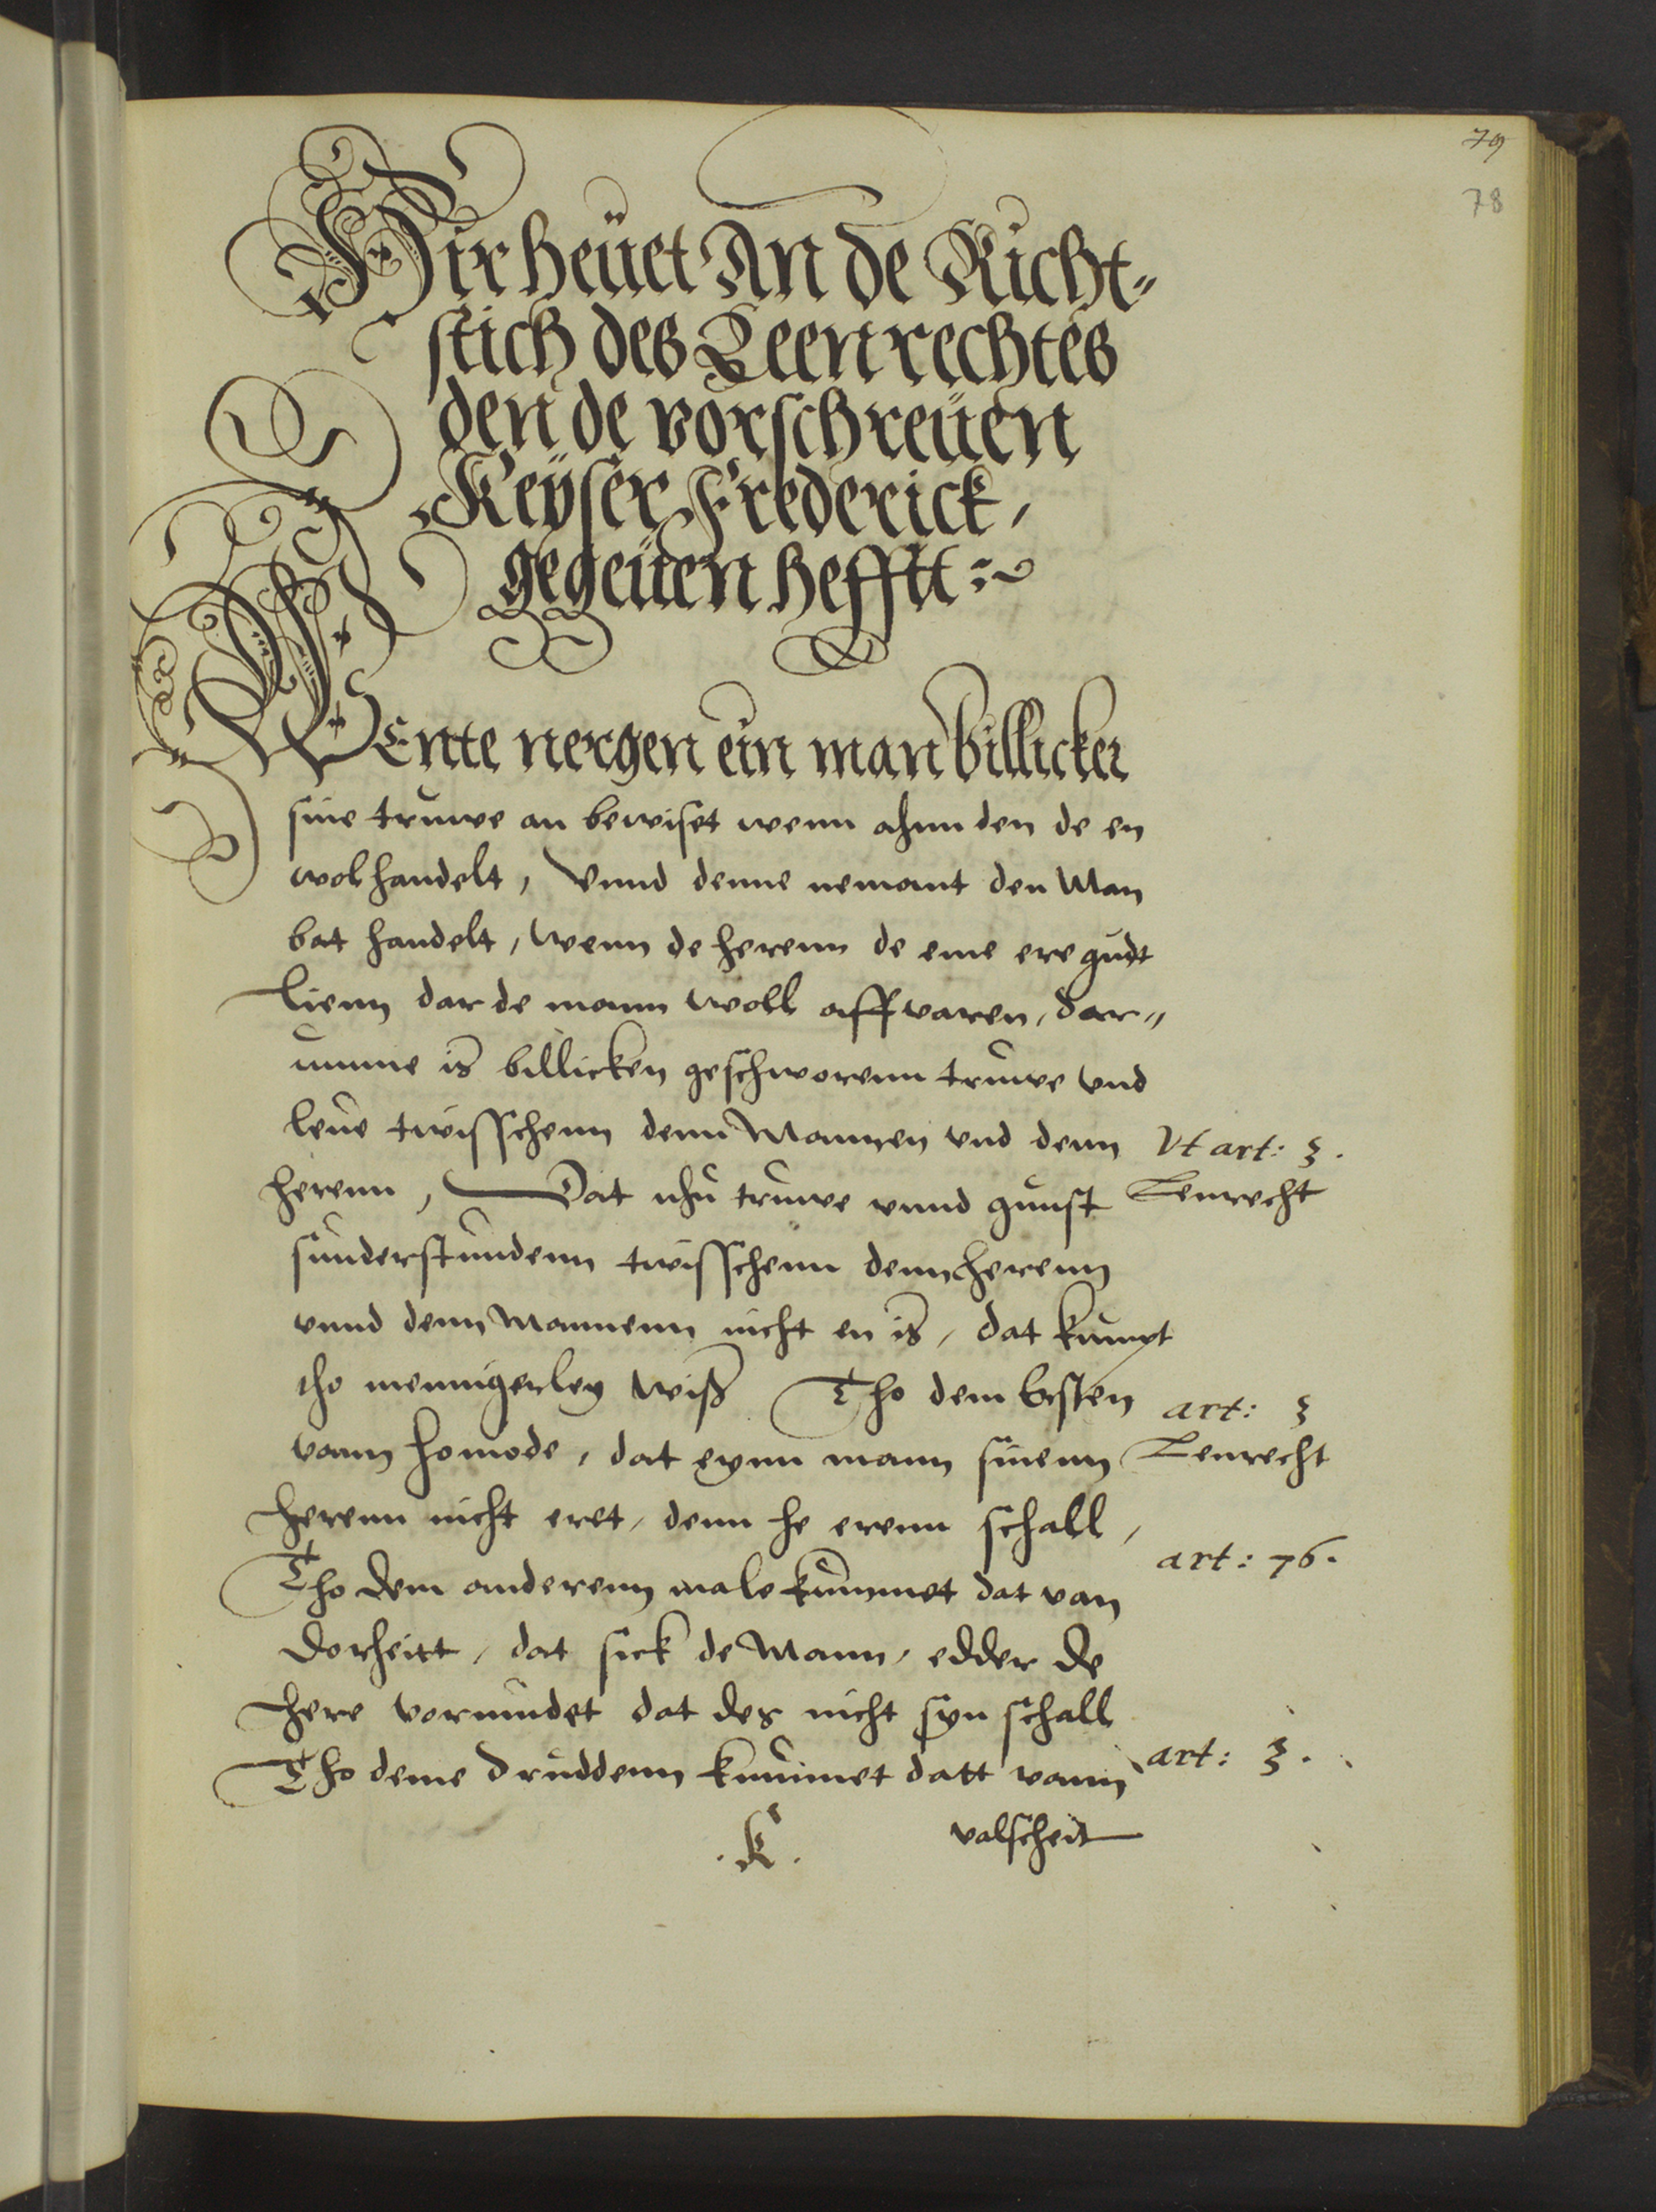 79
78
Hir heuet An de Richt-
stich des Leenrechtes
den de vorschreuen
Keyser Frederick,
gegeuen hefftt :~
WEnte nergen ein man billicker
sine truwe an bewiset wenn ahnn den de en
wol handelt, Vnnd denne nemant den Man
bat handelt, Wenn de herenn de eme ere gudt
Lienn dar de mann Woll aff varen, dar-
umme is billicken geschworenn truwe Vnd
leue twisschenn denn Mannen vnd denn
herenn, Dat nhu truwe vnnd gunst
sunderstundenn twisschenn denn herenn
vnnd denn Mannenn nicht en is, dat kumpt
tho mennigerley Wiß Tho dem Ersten
vann homode, dat eynn mann sinenn
herenn nicht eret, denn he erenn schall,
Tho dem anderenn male kummet dat van
Dorheitt, dat sick de Mann, edder De
here vormudet dat des nicht syn schall
Tho deme Druddenn kummet datt vann
K.
valscheit
Vt art: 3.
Lenrecht
art: 3
Lenrecht
art: 76.
art: 3.